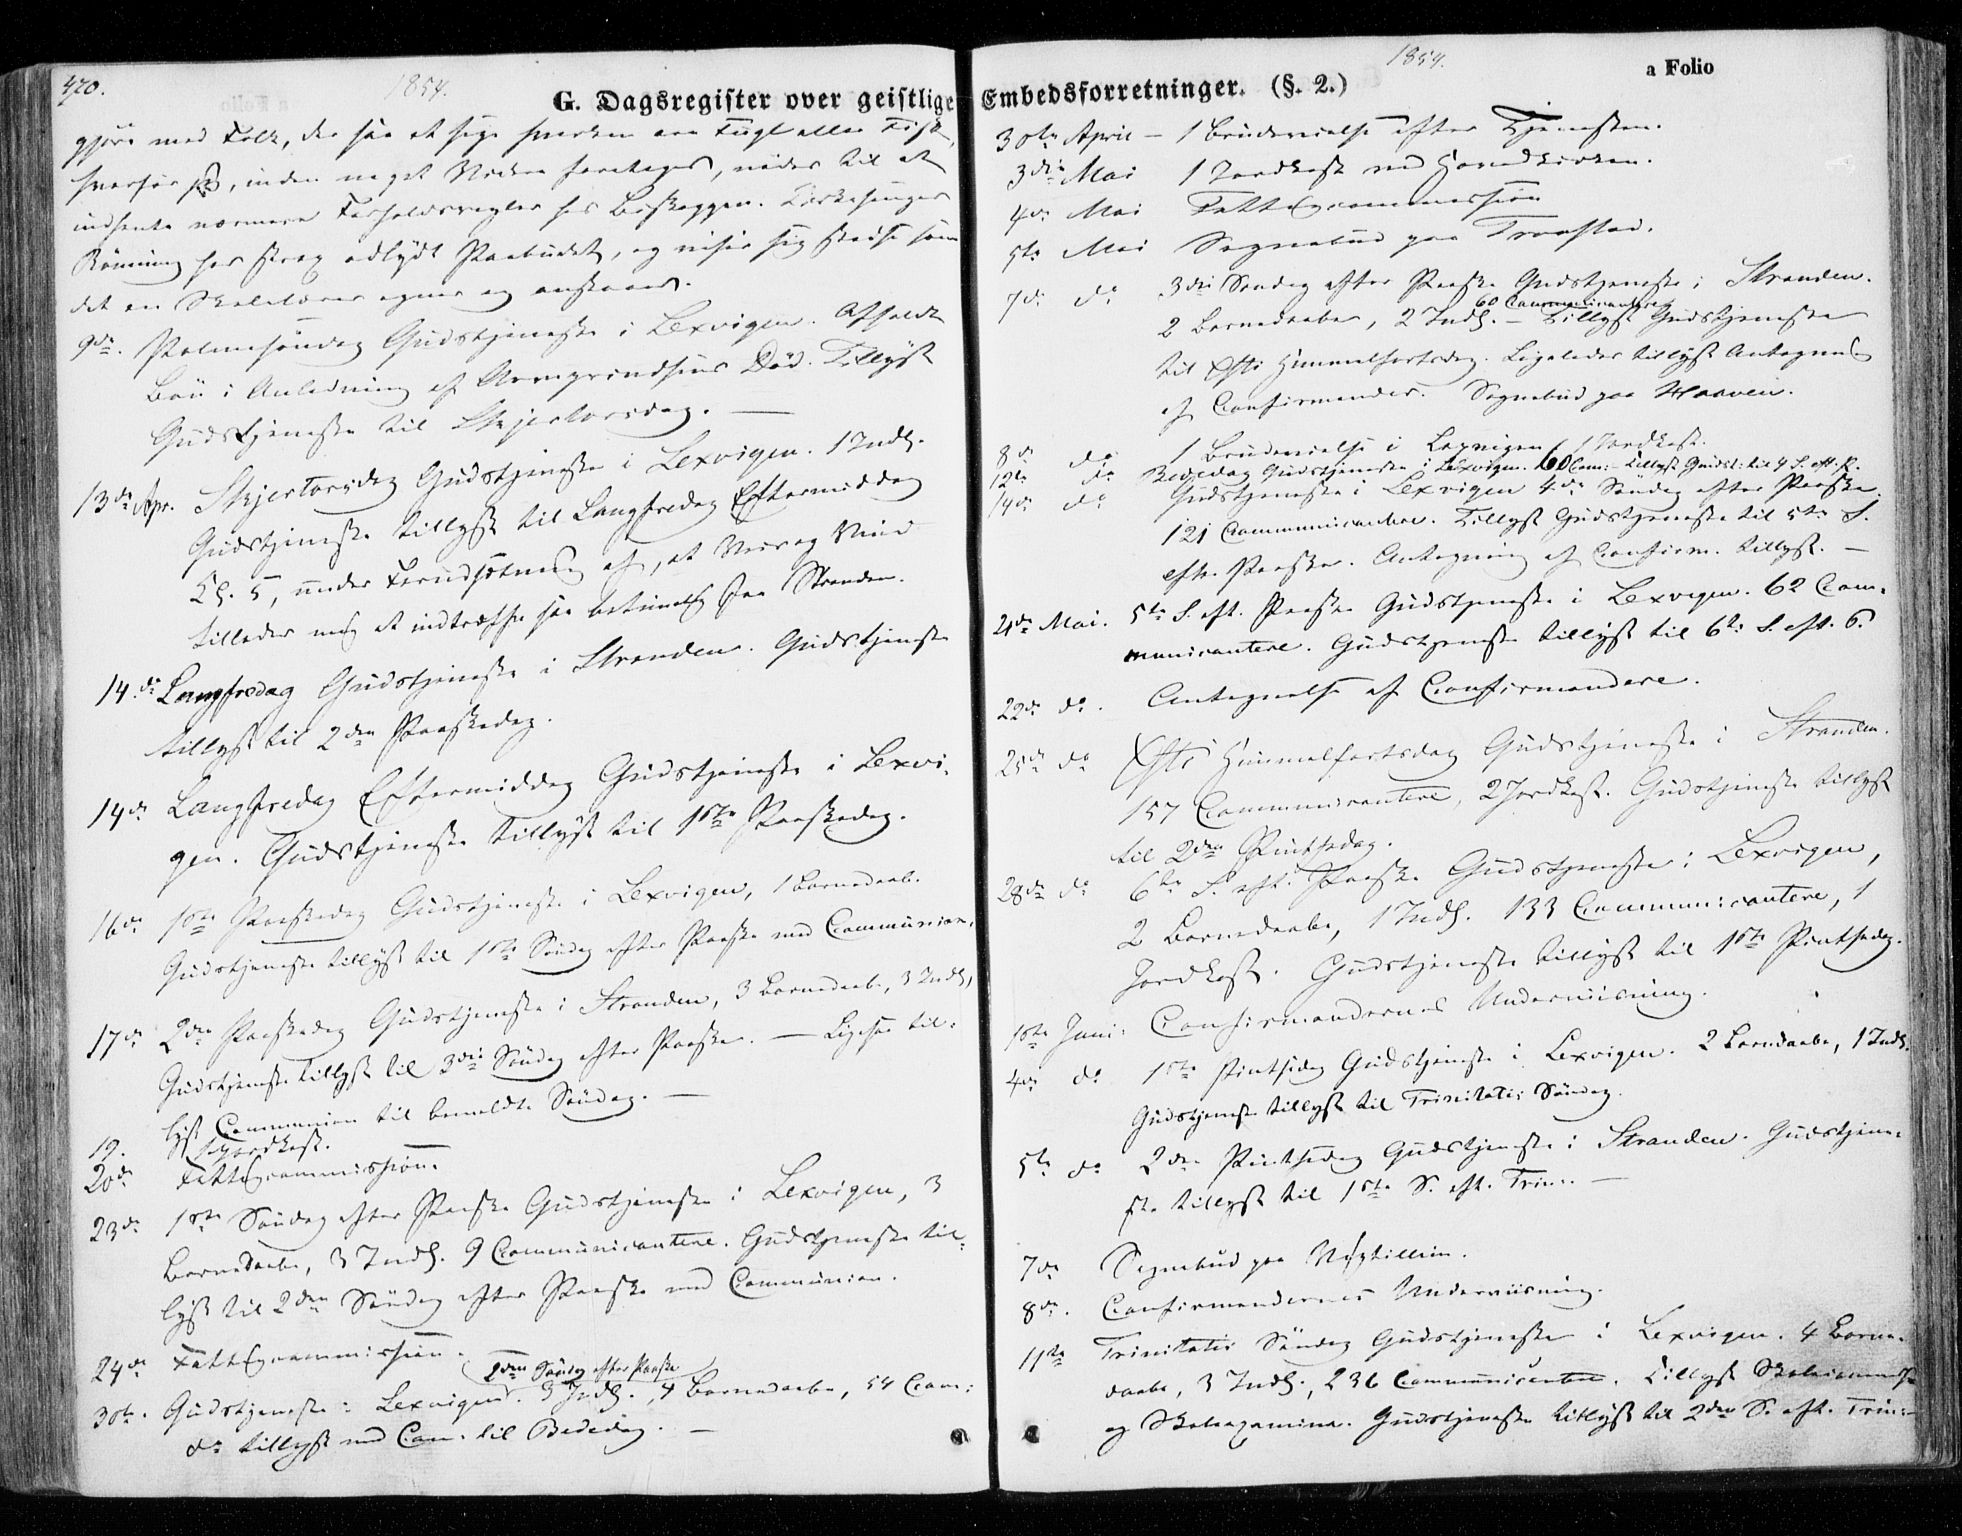 470.
1854.
G. Dagsregister over geistlige
gjøre med Folk, der saa at sige hverken ere Fugl eller Fisk,
hvorfor jeg, inden noget Videre foretages, nødes til at
indhente nærmere Forholdsregler hos Biskoppen. Kirkesanger
Rönning har strax adlydt Paabudet, og viser sig stedse som
det en Skolelærer egner og anstaaer.
9de. Palmesöndag Gudstjeneste i Lexvigen. Afholdt
Bön i Anledning af Arveprindsens Död. Tillyst
Gudstjeneste til Skjertorsdag. —
13de Apr. Skjertorsdag Gudstjeneste i Lexvigen. 1 Indl.
Gudstjeneste tillyst til Langfredag Eftermiddag
Kl. 5, under Forudsætning af, at Veir og Vind
tillader mig at indtræffe saa betimelig fra Stranden.
14.de Langfredag Gudstjeneste i Stranden. Gudstjeneste
tillyst til 2den Paaskedag.
14de Langfredag Eftermiddag Gudstjeneste i Lexvi-
gen. Gudstjeneste tillyst til 1ste Paaskedag.
16de 1ste Paaskedag Gudstjeneste i Lexvigen, 1 Barnedaab.
Gudstjeneste tillyst til 1ste Söndag efter Paaske med Communion.
17de 2den Paaskedag Gudstjeneste i Stranden, 3 Barnedaabe, 3 Indl,
Gudstjeneste tillyst til 3die Söndag efter Paaske. — Ligesaa til-
lyst Communion til bemeldte Söndag. —
19. 1 Jordkast.
20de Fattigcommission.
23de 1ste Söndag efter Paaske Gudstjeneste i Lexvigen, 3
Barnedaabe, 3 Indl. 9 Communicantere. Gudstjeneste til-
lyst til 2den Söndag efter Paaske med Communion.
24de Fattigcommission.
2den Söndag efter Paaske
30te. Gudstjeneste i Lexvigen. 3 Indl., 4 Barnedaabe, 54 Com:
do tillyst med Com. til Bededag. —
1854.
a Folio
Embedsforretninger. (§. 2.)
30te April — 1 Brudevielse efter Tjenesten.
3die Mai 1 Jordkast ved Hovedkirken.
4de Mai Fattigcommission
5te Mai Sognebud paa Traastad.
7de do 3die Söndag efter Paaske Gudstjeneste i Stranden.
60 Communicantere
2 Barnedaabe, 2 Indl. — Tillyst Gudstjeneste
til Chsti Himmelfartsdag. Ligeledes tillyst Antagning
af Confirmander. Sognebud paa Haavein.
8de do 1 Brudevielse i Lexvigen, 1 Jordkast.
12te do Bededag Gudstjeneste i Lexvigen. Com: — Tillyst Gudst: til 4 S. eft. P.
14de do Gudstjeneste i Lexvigen 4de Söndag efter Paaske.
121 Communicantere. Tillyst Gudstjeneste til 5te S.
eftr. Paaske. Antagning af Confirm. tillyst. —
21de Mai. 5te S. eft. Paaske Gudstjeneste i Lexvigen. 62 Com-
municantere. Gudstjeneste tillyst til 6te S. eft. P.
22de do. Antagnelse af Confirmandere.
25de do Chsti Himmelfartsdag Gudstjeneste i Stranden.
157 Communicantere, 2 Jordkast. Gudstjeneste tillyst
til 2den Pintsedag.
28de do 6te S. eft. Paaske Gudstjeneste i Lexvigen,
2 Barnedaabe, 1 Indl. 133 Communicantere, 1
Jordkast. Gudstjeneste tillyst til 1ste Pintsedag.
1ste Juni: Confirmandernes Underviisning.
4de do 1ste Pintsedag Gudstjeneste i Lexvigen. 2 Barnedaabe, 1 Indl.
Gudstjeneste tillyst til Trinitatis Söndag.
5te do 2den Pintsedag Gudstjeneste i Stranden. Gudstjene-
ste tillyst til 1ste S. eft. Trin: —
7de Sognebud paa
8de. Confirmandernes Underviisning.
11te Trinitatis Söndag Gudstjeneste i Lexvigen. 4 Barne-
daabe, 3 Indl., 236 Communicantere. Tillyst
og Skoleexamina. Gudstjeneste tillyst til 2den S. eft. Trin: —